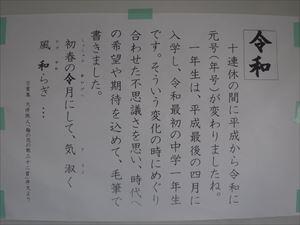 令和
十連休の間に平成から令和に
元号(年号)が変わりましたね。
一年生は、平成最後の四月に
入学し、令和最初の中学一年生
です。そういう変化の時にめぐり
合わせた不思議さを思い、時代へ
の希望や期待を込めて、毛筆で
書きました。
初春の令月にして、気淑く
風和らぎ…